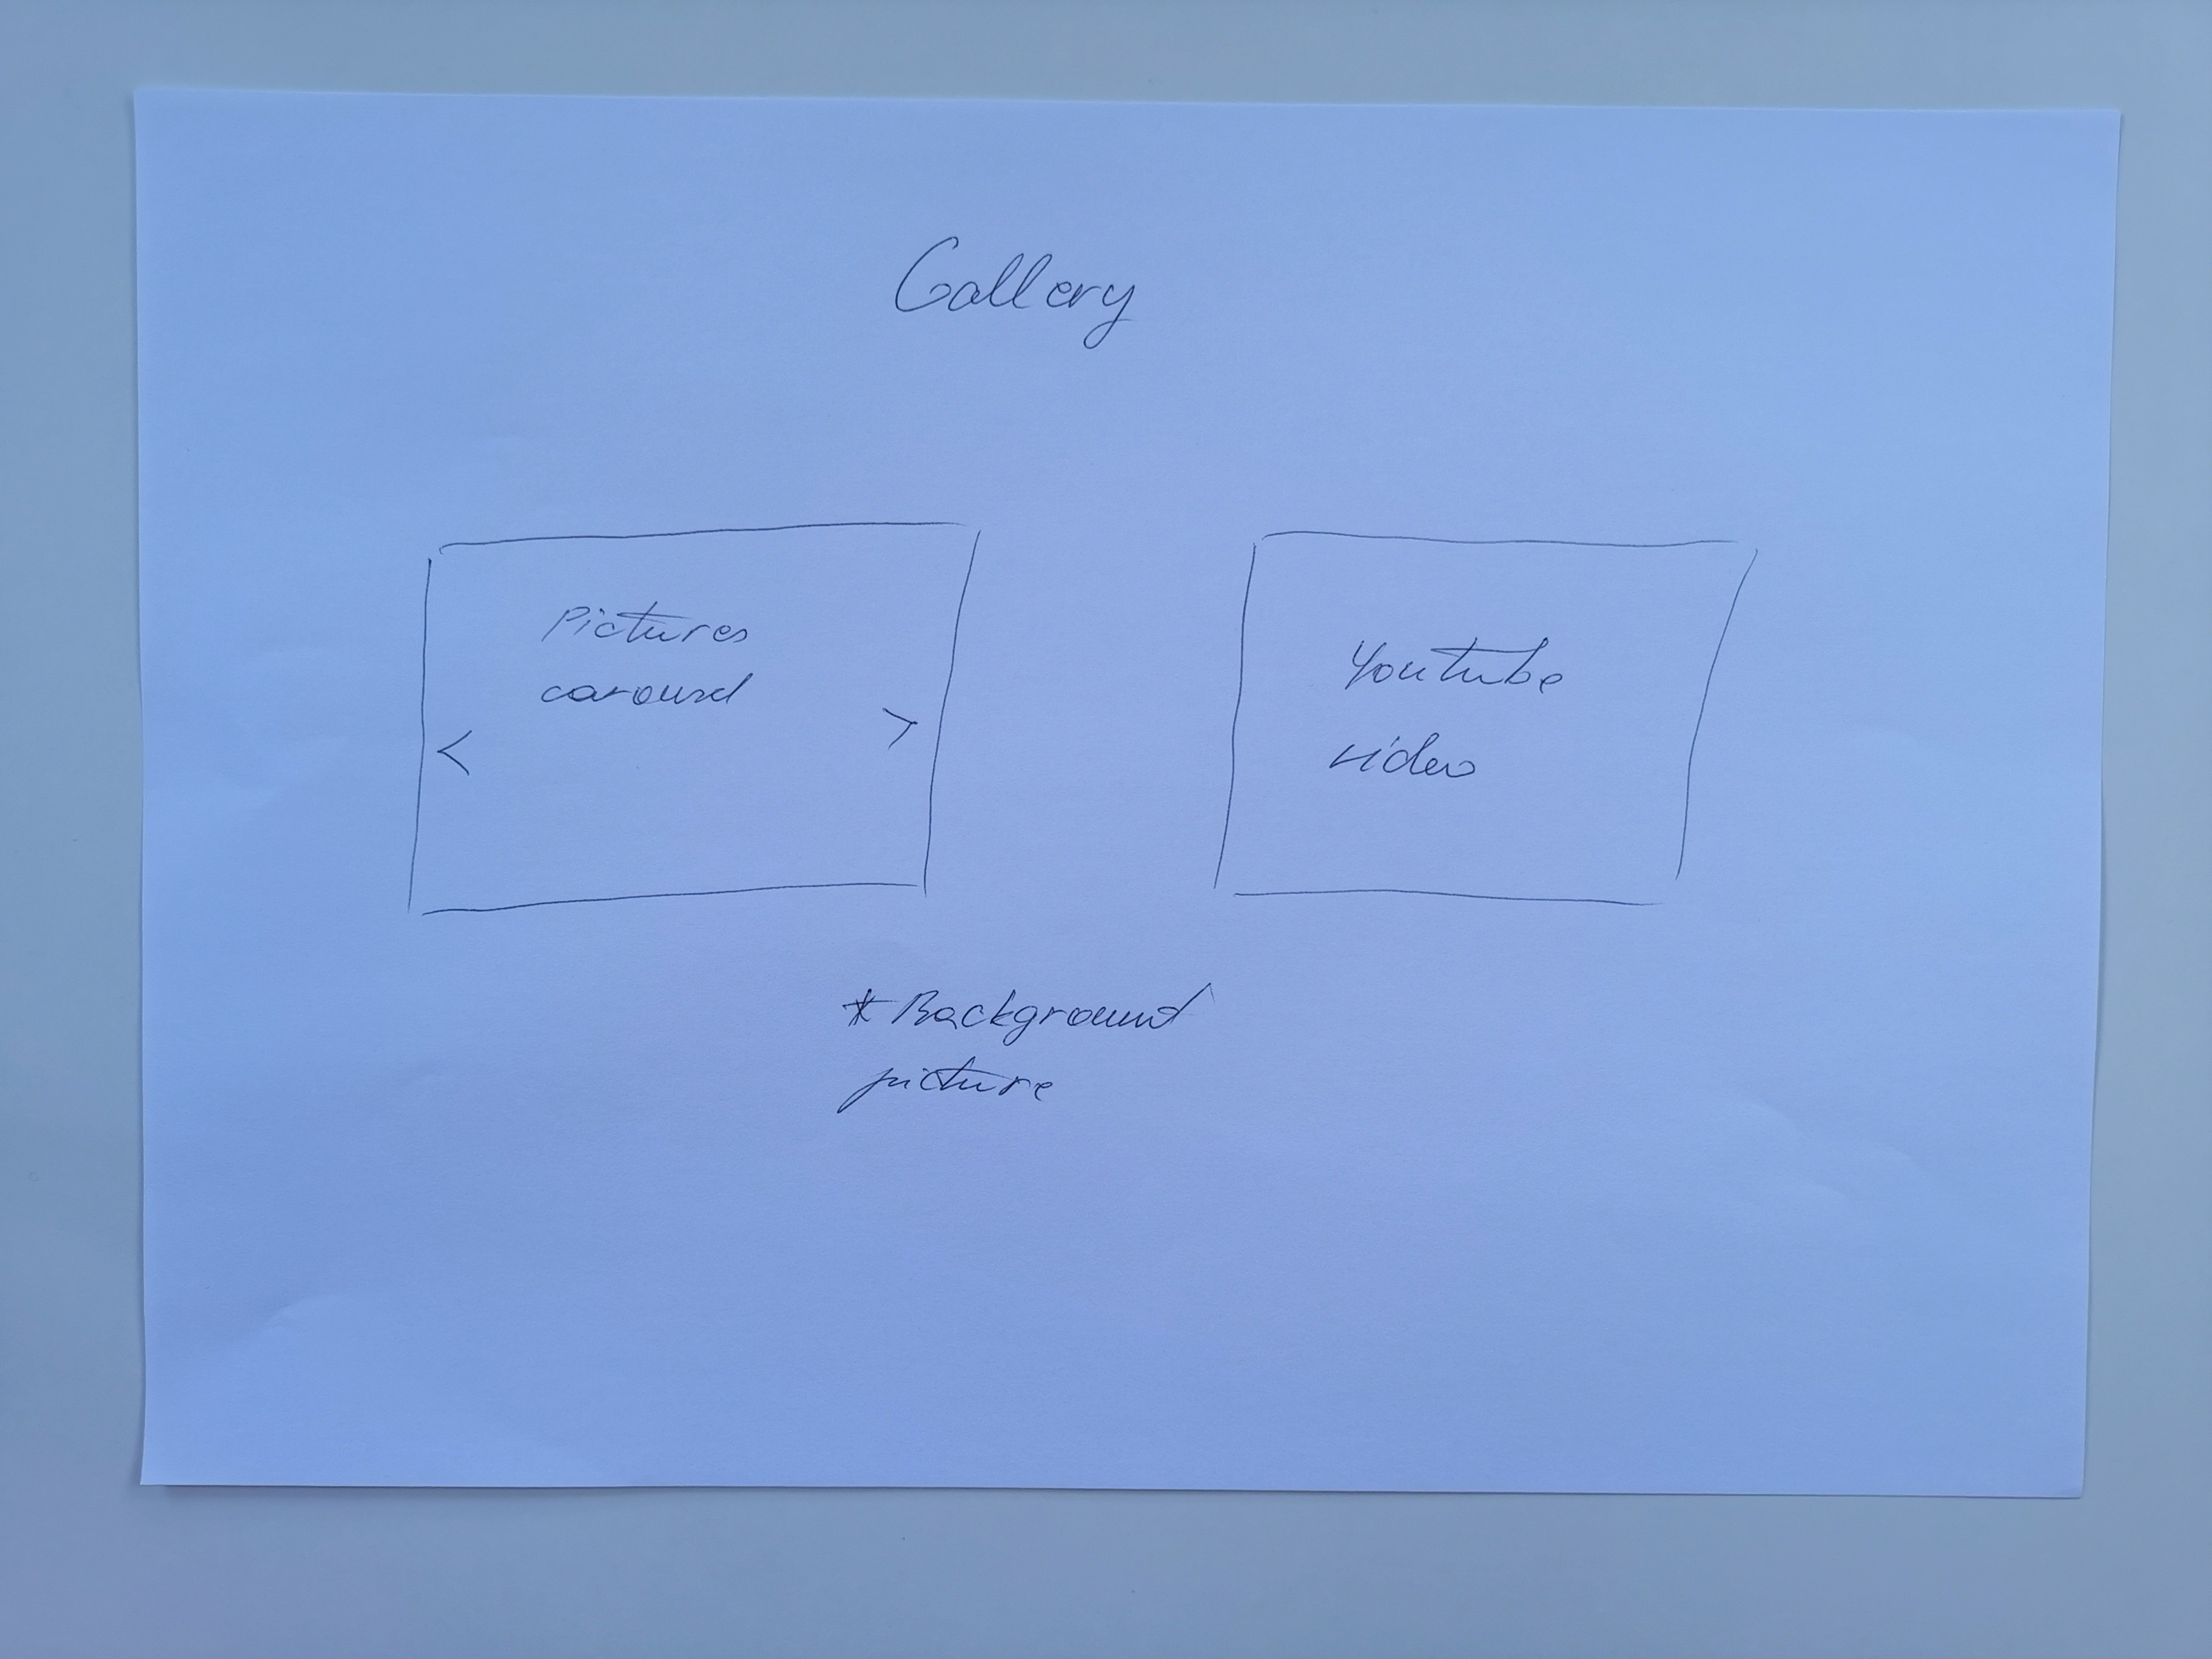 Gallery
Pictures
carousel
<
>
Youtube
video
* Background
picture